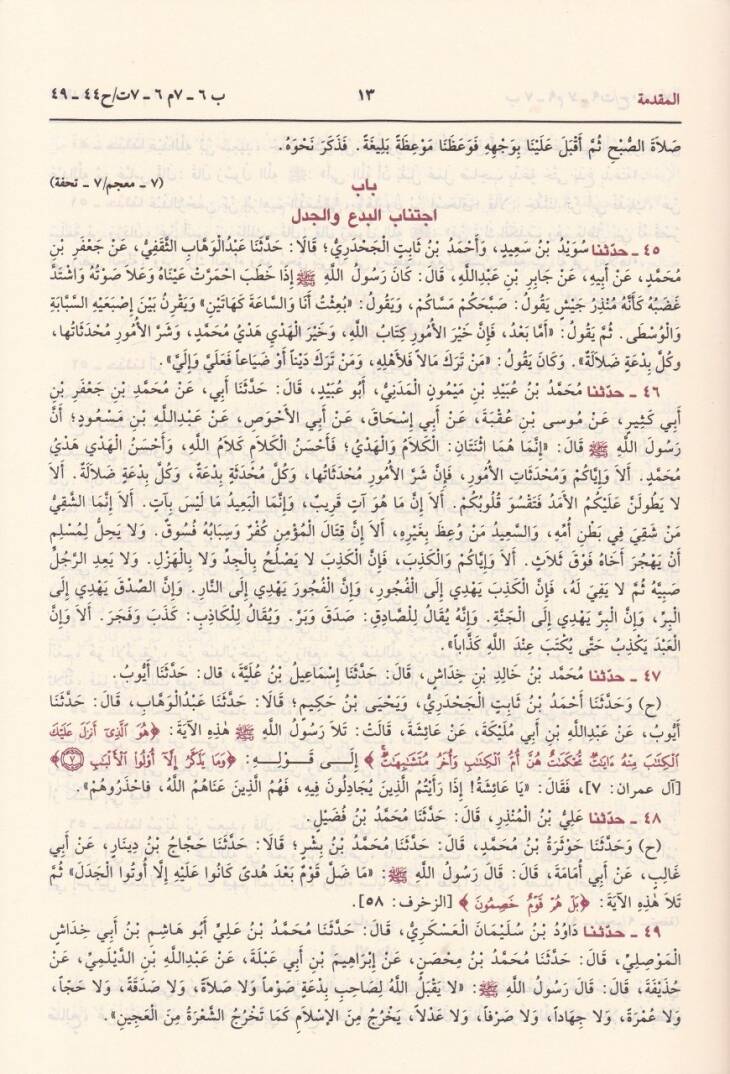 المقدمة ١٣ ب ٦ - ٧م ٦ - ٧ت/ح٤٤ - ٤٩
صَلاَةَ الصُّبْحِ ثُمَّ أَقْبَلَ عَلَيْنَا بِوَجْهِهِ فَوَعَظَنَا مَوْعِظَةً بَلِيغَةً. فَذَكَرَ نَحْوَهُ.
باب (٧ - معجم/٧ - تحفة)
اجتناب البدع والجدل
٤٥ - حدّثنا سُوَيْدُ بْنُ سَعِيدٍ، وَأَحْمَدُ بْنُ ثَابِتٍ الْجَحْدَرِيُّ؛ قَالَا: حَدَّثَنَا عَبْدُالْوَهَّابِ الثَّقَفِيُّ، عَنْ جَعْفَرِ بْنِ
مُحَمَّدٍ، عَنْ أَبِيهِ، عَنْ جَابِرِ بْنِ عَبْدِاللَّهِ، قَالَ: كَانَ رَسُولُ اللَّهِ ﷺ إِذَا خَطَبَ احْمَرَّتْ عَيْنَاهُ وَعَلاَ صَوْتُهُ وَاشْتَدَّ
غَضَبُهُ كَأَنَّهُ مُنْذِرُ جَيْشٍ يَقُولُ: صَبَّحَكُمْ مَسَّاكُمْ، وَيَقُولُ: «بُعِثْتُ أَنَا وَالسَّاعَةَ كَهَاتَيْنِ» وَيَقْرِنُ بَيْنَ إِصْبَعَيْهِ السَّبَّابَةِ
وَالْوُسْطَى. ثُمَّ يَقُولُ: «أَمَّا بَعْدُ، فَإِنَّ خَيْرَ الأُمُورِ كِتَابُ اللَّهِ، وَخَيْرَ الْهَدْيِ هَدْيُ مُحَمَّدٍ، وَشَرَّ الأُمُورِ مُحْدَثَاتُها،
وكُلَّ بِدْعَةٍ ضَلاَلَةٌ». وَكَانَ يَقُولُ: «مَنْ تَرَكَ مَالاً فَلأَهْلِهِ، وَمَنْ تَرَكَ دَيْناً أَوْ ضَيَاعاً فَعَلَيَّ وَإِلَيَّ».
٤٦ - حدّثنا مُحَمَّدُ بْنُ عُبَيْدِ بْنِ مَيْمُونٍ الْمَدَنِيُّ، أَبُو عُبَيْدٍ، قَالَ: حَدَّثَنَا أَبِي، عَنْ مُحَمَّدِ بْنِ جَعْفَرِ بْنِ
أَبِي كَثِيرٍ، عَنْ مُوسى بْنِ عُقْبَةَ، عَنْ أَبِي إِسْحَاقَ، عَنْ أَبِي الأَحْوَصِ، عَنْ عَبْدِاللَّهِ بْنِ مَسْعُودٍ؛ أَنَّ
رَسُولَ اللَّهِ ﷺ قَالَ: «إِنَّمَا هُمَا اثْنَتَانِ: الْكَلاَمُ وَالْهَدْيُ؛ فَأَحْسَنُ الْكَلاَمِ كَلاَمُ اللَّهِ، وَأَحْسَنُ الْهَدْيِ هَدْيُ
مُحَمَّدٍ. أَلاَ وَإِيَّاكُمْ وَمُحْدَثَاتِ الأُمُورِ، فَإِنَّ شَرَّ الأُمُورِ مُحْدَثَاتُها، وَكُلُّ مُحْدَثَةٍ بِدْعَةٌ، وَكُلُّ بِدْعَةٍ ضَلاَلَةٌ. أَلاَ
لا يَطُولَنَّ عَلَيْكُمُ الأَمَدُ فَتَقْسُوَ قُلُوبُكُمْ. أَلاَ إِنَّ مَا هُوَ آتٍ قَرِيبٌ، وَإِنَّمَا الْبَعِيدُ مَا لَيْسَ بِآتٍ. أَلاَ إِنَّمَا الشَّقِيُّ
مَنْ شَقِيَ فِي بَطْنِ أُمِّهِ، وَالسَّعِيدُ مَنْ وُعِظَ بِغَيْرِهِ، أَلاَ إِنَّ قِتَالَ الْمُؤْمِنِ كُفْرٌ وَسِبَابُهُ فُسُوقٌ. وَلاَ يَحِلُّ لِمُسْلِمٍ
أَنْ يَهْجُرَ أَخَاهُ فَوْقَ ثَلاَثٍ. أَلاَ وَإِيَّاكُمْ وَالْكَذِبَ، فَإِنَّ الْكَذِبَ لاَ يَصْلُحُ بِالْجِدِّ وَلاَ بِالْهَزْلِ. وَلاَ يَعِدِ الرَّجُلُ
صَبِيَّهُ ثُمَّ لاَ يَفِيَ لَهُ، فَإِنَّ الْكَذِبَ يَهْدِي إِلَى الْفُجُورِ، وَإِنَّ الْفُجُورَ يَهْدِي إِلَى النَّارِ. وَإِنَّ الصِّدْقَ يَهْدِي إِلَى
الْبِرِّ، وَإِنَّ الْبِرَّ يَهْدِي إِلَى الْجَنَّةِ. وَإِنَّهُ يُقَالُ لِلصَّادِقِ: صَدَقَ وَبَرَّ. وَيُقَالُ لِلْكاذِبِ: كَذَبَ وَفَجَرَ. أَلاَ وَإِنَّ
الْعَبْدَ يَكْذِبُ حَتَّى يُكْتَبَ عِنْدَ اللَّهِ كَذَّاباً».
٤٧ - حدّثنا مُحَمَّدُ بْنُ خَالِدِ بْنِ خِدَاشٍ، قَالَ: حَدَّثَنَا إِسْمَاعِيلُ بْنُ عُلَيَّةَ، قال: حَدَّثَنَا أَيُّوبُ.
(ح) وَحَدَّثَنَا أَحْمَدُ بْنُ ثَابِتٍ الْجَحْدَرِيُّ، وَيَحْيَى بْنُ حَكِيمٍ؛ قَالَا: حَدَّثَنَا عَبْدُالْوَهَّابِ، قَالَ: حَدَّثَنَا
أَيُّوبُ، عَنْ عَبْدِاللَّهِ بْنِ أَبِي مُلَيْكَةَ، عَنْ عَائِشَةَ، قَالَتْ: تَلاَ رَسُولُ اللَّهِ ﷺ هَٰذِهِ الآيَةَ: ﴿هُوَ الَّذِي أَنزَلَ عَلَيْكَ
الْكِتَابَ مِنْهُ ءَايَاتٌ مُّحْكَمَاتٌ هُنَّ أُمُّ الْكِتَابِ وَأُخَرُ مُتَشَابِهَاتٌ﴾ إِلَى قَوْلِهِ: ﴿وَمَا يَذَّكَّرُ إِلَّا أُوْلُوا الْأَلْبَابِ ٧﴾
[آل عمران: ٧]، فَقَالَ: «يَا عَائِشَةُ! إِذَا رَأَيْتُمُ الَّذِينَ يُجَادِلُونَ فِيهِ، فَهُمُ الَّذِينَ عَنَاهُمُ اللَّهُ، فَاحْذَرُوهُمْ».
٤٨ - حدّثنا عَلِيُّ بْنُ الْمُنْذِرِ، قَالَ: حَدَّثَنَا مُحَمَّدُ بْنُ فُضَيْلٍ.
(ح) وَحَدَّثَنَا حَوْثَرَةُ بْنُ مُحَمَّدٍ، قَالَ: حَدَّثَنَا مُحَمَّدُ بْنُ بِشْرٍ؛ قَالَا: حَدَّثَنَا حَجَّاجُ بْنُ دِينَارٍ، عَنْ أَبِي
غَالِبٍ، عَنْ أَبِي أُمَامَةَ، قَالَ: قَالَ رَسُولُ اللَّهِ ﷺ: «مَا ضَلَّ قَوْمٌ بَعْدَ هُدىً كَانُوا عَلَيْهِ إِلَّا أُوتُوا الْجَدَلَ» ثُمَّ
تَلاَ هَٰذِهِ الآيَةَ: ﴿بَلْ هُمْ قَوْمٌ خَصِمُونَ﴾ [الزخرف: ٥٨].
٤٩ - حدّثنا دَاوُدُ بْنُ سُلَيْمَانَ الْعَسْكَرِيُّ، قَالَ: حَدَّثَنَا مُحَمَّدُ بْنُ عَلِيٍّ أَبُو هَاشِمِ بْنُ أَبِي خِدَاشٍ
الْمَوْصِلِيُّ، قَالَ: حَدَّثَنَا مُحَمَّدُ بْنُ مِحْصَنٍ، عَنْ إِبْرَاهِيمَ بْنِ أَبِي عَبْلَةَ، عَنْ عَبْدِاللَّهِ بْنِ الدَّيْلَمِيِّ، عَنْ
حُذَيْفَةَ، قَالَ: قَالَ رَسُولُ اللَّهِ ﷺ: «لا يَقْبَلُ اللَّهُ لِصَاحِبِ بِدْعَةٍ صَوْماً وَلاَ صَلاَةً، وَلاَ صَدَقَةً، وَلاَ حَجّاً،
وَلاَ عُمْرَةً، وَلاَ جِهَاداً، وَلاَ صَرْفاً، وَلاَ عَدْلاً، يَخْرُجُ مِنَ الإِسْلاَمِ كَمَا تَخْرُجُ الشَّعْرَةُ مِنَ الْعَجِينِ».